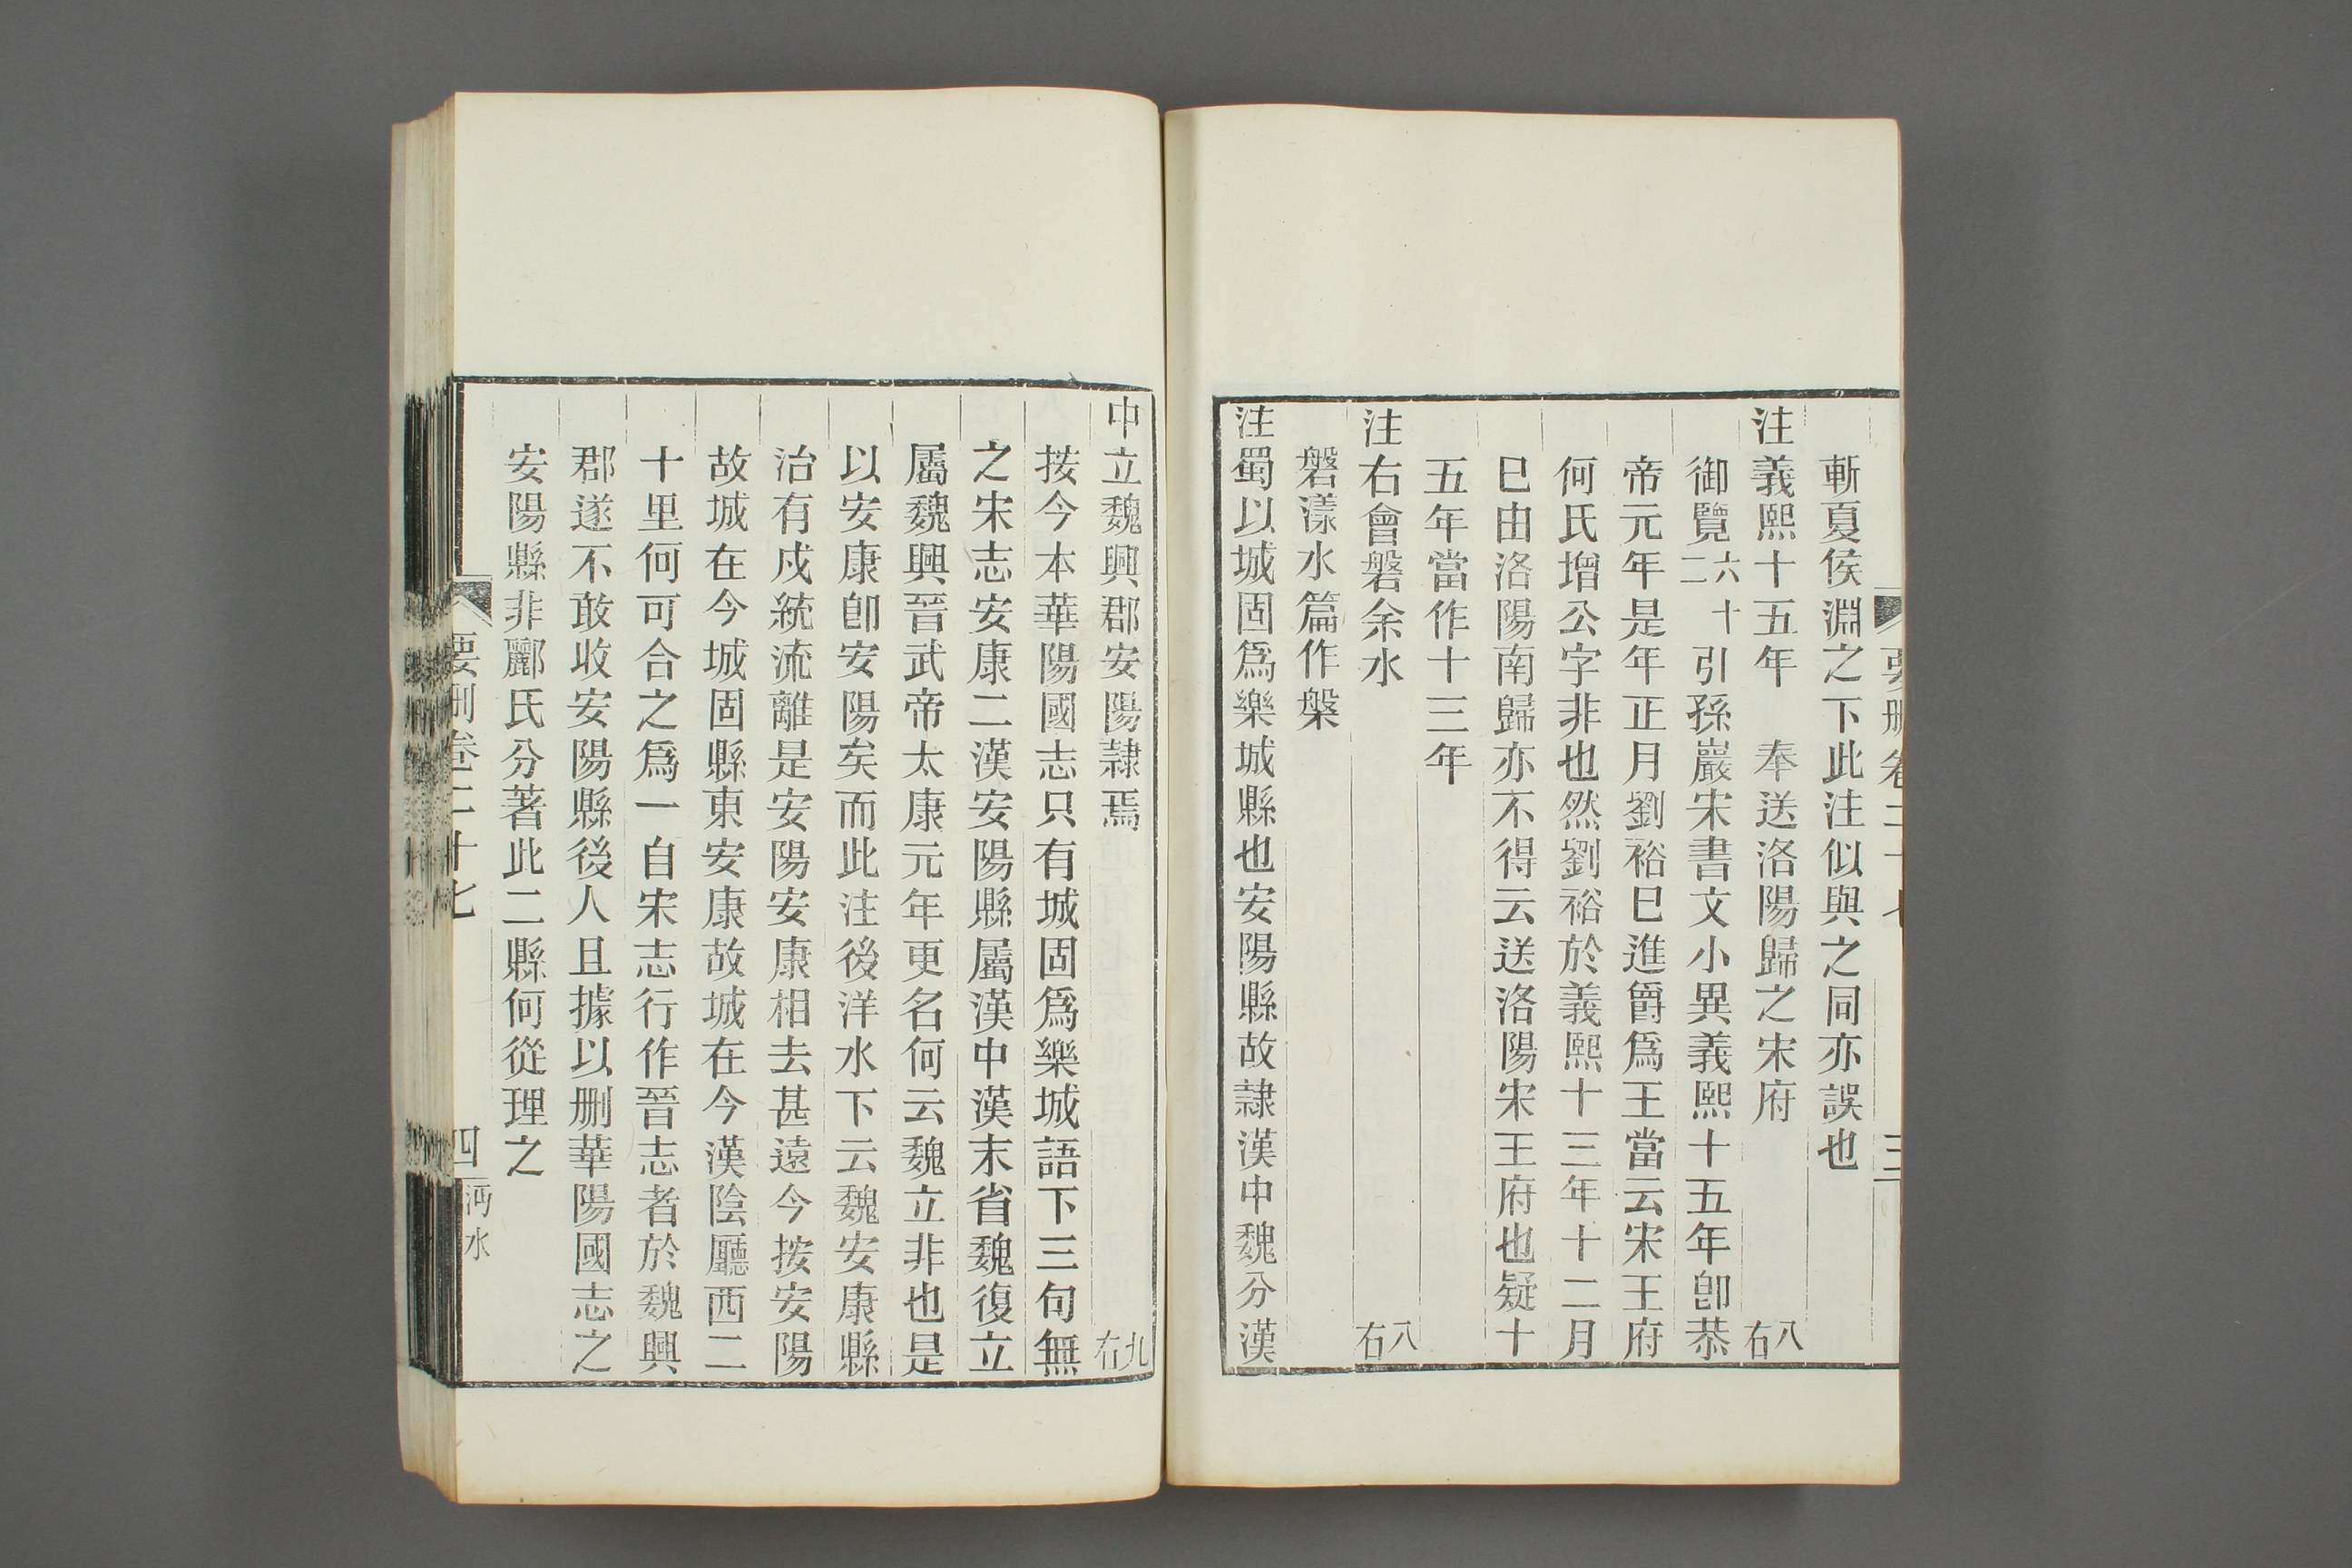 斬夏侯淵之下此注似與之同亦誤也
注義熙十五年　奉送洛陽歸之宋府　八右
御覽六十二引孫巖宋書文小異義熙十五年卽恭
帝元年是年正月劉裕巳進爵爲王當云宋王府
何氏增公字非也然劉裕於義熙十三年十二月
巳由洛陽南歸亦不得云送洛陽宋王府也疑十
五年當作十三年
注右會磐余水　八右
磐漾水篇作槃
注蜀以城固爲樂城縣也安陽縣故隸漢中魏分漢
中立魏興郡安陽隸焉　九右
按今本華陽國志只有城固爲樂城語下三句無
之宋志安康二漢安陽縣屬漢中漢末省魏復立
屬魏興晉武帝太康元年更名何云魏立非也是
以安康卽安陽矣而此注後洋水下云魏安康縣
治有戍統流離是安陽安康相去甚遠今按安陽
故城在今城固縣東安康故城在今漢陰廳西二
十里何可合之爲一自宋志行作晉志者於魏興
郡遂不敢收安陽縣後人且據以刪華陽國志之
安陽縣非酈氏分著此二縣何從理之
要刪卷二十七　四　沔水